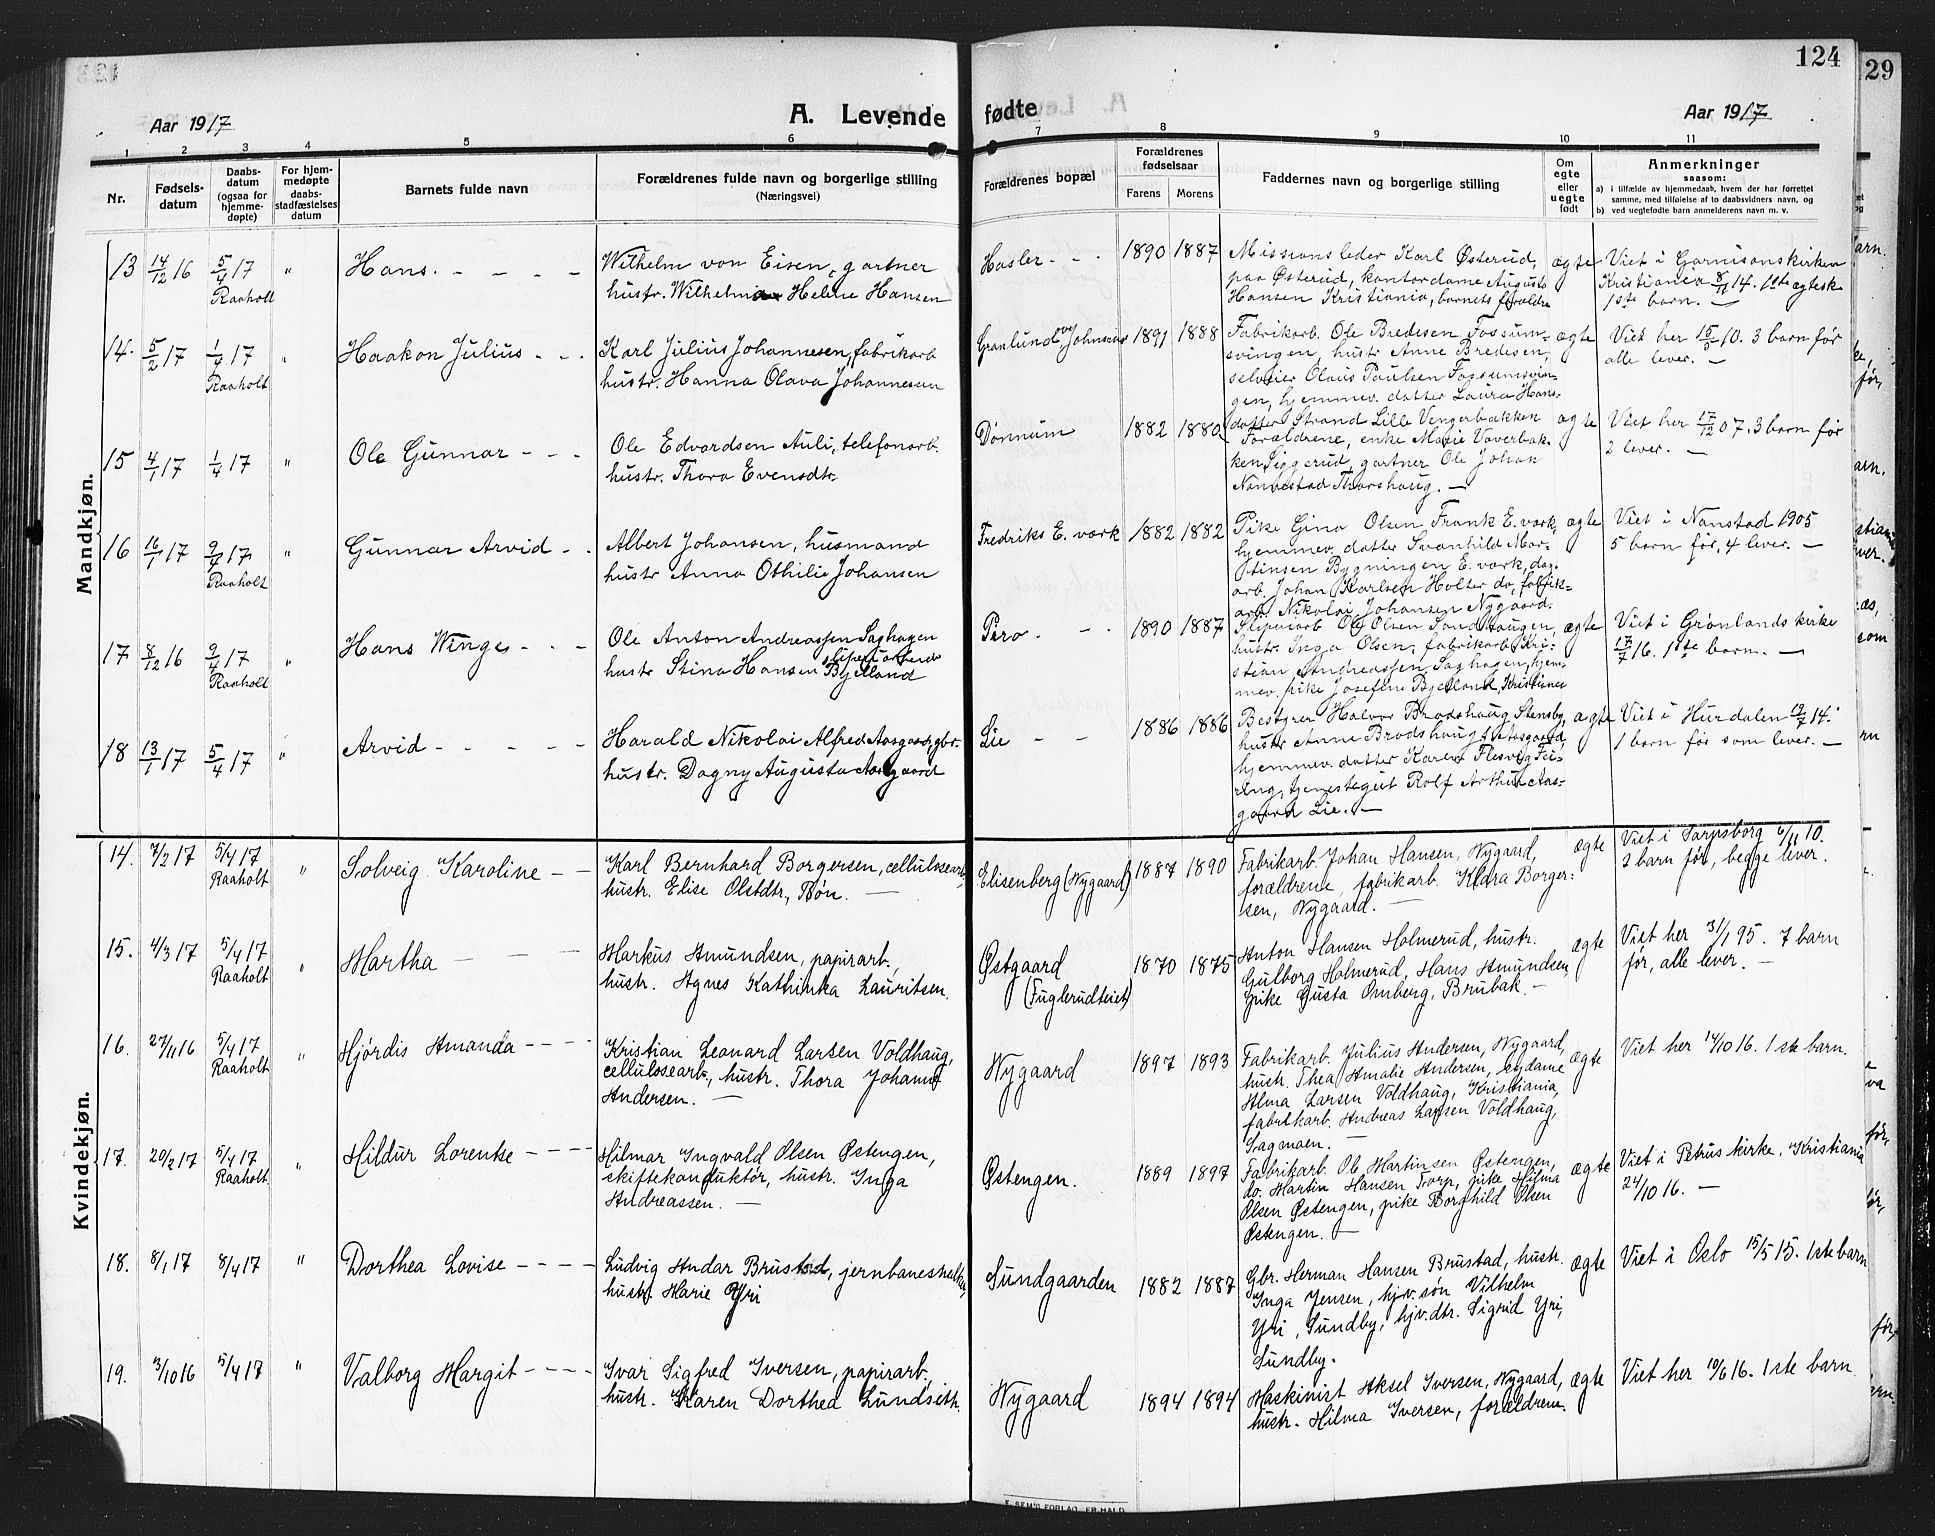 124
29
Aar 1917
A. Levende fødte
Aar 1917
1 2 3 4 5 6 7 8 9 10 11
Nr.
Fødsels-
datum
Daabs-
datum
(ogsaa for
hjemme-
døpte)
For hjem-
medøpte
daabs-
stadfæstelses
datum
Barnets fulde navn
Forældrenes fulde navn og borgerlige stilling
(Næringsvei)
Forældrenes bopæl
Forældrenes
fødselsaar
Farens Morens
Faddernes navn og borgerlige stilling
Om
egte
eller
uegte
født
Anmerkninger
saasom:
a) i tilfælde av hjemmedaab, hvem der har forrettet
samme, med tilføielse af to daabsvidners navn, og
b) ved uegtefødte barn anmelderens navn m. v.
Mandkjøn.
13 14/12 16 5/4 17 " Hans. - - - -
Raaholt
Wilhelm von Eisen, gartner
hustr. Wilhelmine Helene Hansen
Hasler - - 1890 1887
Missionsleder Karl Østerud,
paa Østerud, kontordame Augusta
Hansen Kristiania, barnets forældre
ægte
Viet i Garnisonskirken
Kristiania 8/11 14. 1ste ægtesk
1ste barn. —
14. 5/2 17 1/4 17 " Haakon Julius - -
Raaholt
Karl Julius Johannesen, fabrikarb
hustr. Hanna Olava Johannessen
Granlund v/ Johnsrud 1891 1888
Fabrikarb. Ole Bredesen Fossum-
svingen, hustr Anne Bredesen,
selveier Olaus Paulsen Fossumsvin-
gen, hjemmev. datter Laura Hans-
datter Strand Lille Vengerbakken
ægte
Viet her 15/5 10. 3 barn før
alle lever. —
15 4/1 17 1/4 17 " Ole Gunnar - - -
Ole Edvardsen Auli, telefonarb.
hustr. Thora Evensdtr.
Dønnum 1882 1880
Forældrene, enke Marie Voverbak-
ken Siggerud, gartner Ole Johan
Nannestad Thorshaug. —
ægte
Viet her 17/12 07. 3 barn før
2 lever. —
16 16/1 17 9/4 17 " Gunnar Arvid - -
Raaholt
Albert Johansen, husmand
hustr Anna Othilie Johansen
Fredriks E. værk 1882 1882
Pike Gina Olsen, Frank E. værk,
hjemmev. datter Svanhild Mar-
tinsen Bygningen E. værk, dag-
arb. Johan Karlsen Holter do, fabrik-
arb. Nikolai Johansen Nygaard.
ægte
Viet i Nanstad 1905
5 barn før, 4 lever. —
17 8/12 16 9/4 17 " Hans Winge - - -
Raaholt
Ole Anton Andreassen Saghagen
sliperiarbeider
hustr Stina Hansen Bjelland
Pero. - - 1890 1887
Sliperiarb Ole Olsen Sandhaugen,
hustr. Inga Olsen, fabrikarb. Kri-
stian Andreassen Saghagen, hjem-
mev. pike Josefine Bjelland, Kristiania
ægte
Viet i Grønlands kirke
17/7 16. 1ste barn. —
18 13/1 17 5/4 17 " Arvid - - - - -
Harald Nikolai Alfred Aasgaard, gbr.
hustr. Dagny Augusta Aasgaard
Lie - - 1886 1886
Bestyrer Halvor Brodshaug, Stensby,
hustr Anne Brodshaug,
hjemmev. datter Karen Flesvig Fei-
ring, tjenestegut Rolf Arthur Aas-
gaard Lie. —
ægte
Viet i Hurdalen 12/7 14.
1 barn før som lever. —
Kvindekjøn.
14. 7/2 17 5/4 17 " Solveig Karoline - -
Raaholt
Karl Bernhard Borgersen, cellulosearb.,
hustr. Elise Olstdtr, Bøn. —
Elisenberg (Nygaard) 1887 1890
Fabrikarb. Johan Hansen, Nygaard,
forældrene, fabrikarb. Klara Borger-
sen, Nygaard. —
ægte
Viet i Sarpsborg 6/11 10.
2 barn før, begge lever.
15. 4/3 17 5/4 17 " Martha - - -
Raaholt
Markus Amundsen, papirarb.,
hustr. Agnes Kathinka Lauritsen.
Østgaard 1870 1875
(Fuglerudteiet)
Anton Hansen Holmerud, hustr.
Gulborg Holmerud, Hans Amundsen,
pike Gusta Omberg, Brubak. —
ægte
Viet her 31/1 95. 7 barn
før, alle lever. —
16. 27/11 16 5/4 17 " Hjördis Amanda - - - -
Raaholt
Kristian Leonard Larsen Voldhaug,
cellulosearb., hustr. Thora Johanne
Andersen. —
Nygaard 1897 1893
Fabrikarb. Julius Andersen, Nygaard,
hustr. Thea Amalie Andersen, sydame
Alma Larsen Voldhaug, Kristiania,
fabrikarb. Andreas Larsen Voldhaug,
Sagmoen. —
ægte
Viet her 14/10 16. 1ste barn.
17. 20/2 17 5/4 17 " Hildur Lorentse - - - -
Raaholt
Hilmar Ingvald Olsen Østengen,
skiftekonduktør, hustr. Inga
Andreassen. —
Østengen. 1889 1897
Fabrikarb. Ole Martinsen Østengen,
do. Martin Hansen Torp, pike Hilma
Olsen Østengen, pike Borghild Olsen
Østengen. —
ægte
Viet i Petrus kirke, Kristiania
24/10 16. —
18. 8/1 17 8/4 17 " Dorthea Lovise - - - -
Ludvig Andar Brustad, jernbanesnekker,
hustr Marie Yri
Sundgaarden 1882 1887
Gbr. Herman Hansen Brustad, hustr.
Inga Jensen, hjv. søn Vilhelm
Yri, Sundby, hjv. dtr. Sigrid Yri,
Sundby.
ægte
Viet i Oslo 15/5 15. 1ste barn
19. 3/10 16 5/4 17 " Valborg Margit - - - -
Ivar Sigfred Iversen, papirarb.,
hustr. Karen Dorthea Lundseth.
Nygaard 1894 1894
Maskinist Aksel Iversen, Nygaard,
hustr. Hilma Iversen, forældrene.
ægte
Viet her 10/6 16. 1ste barn